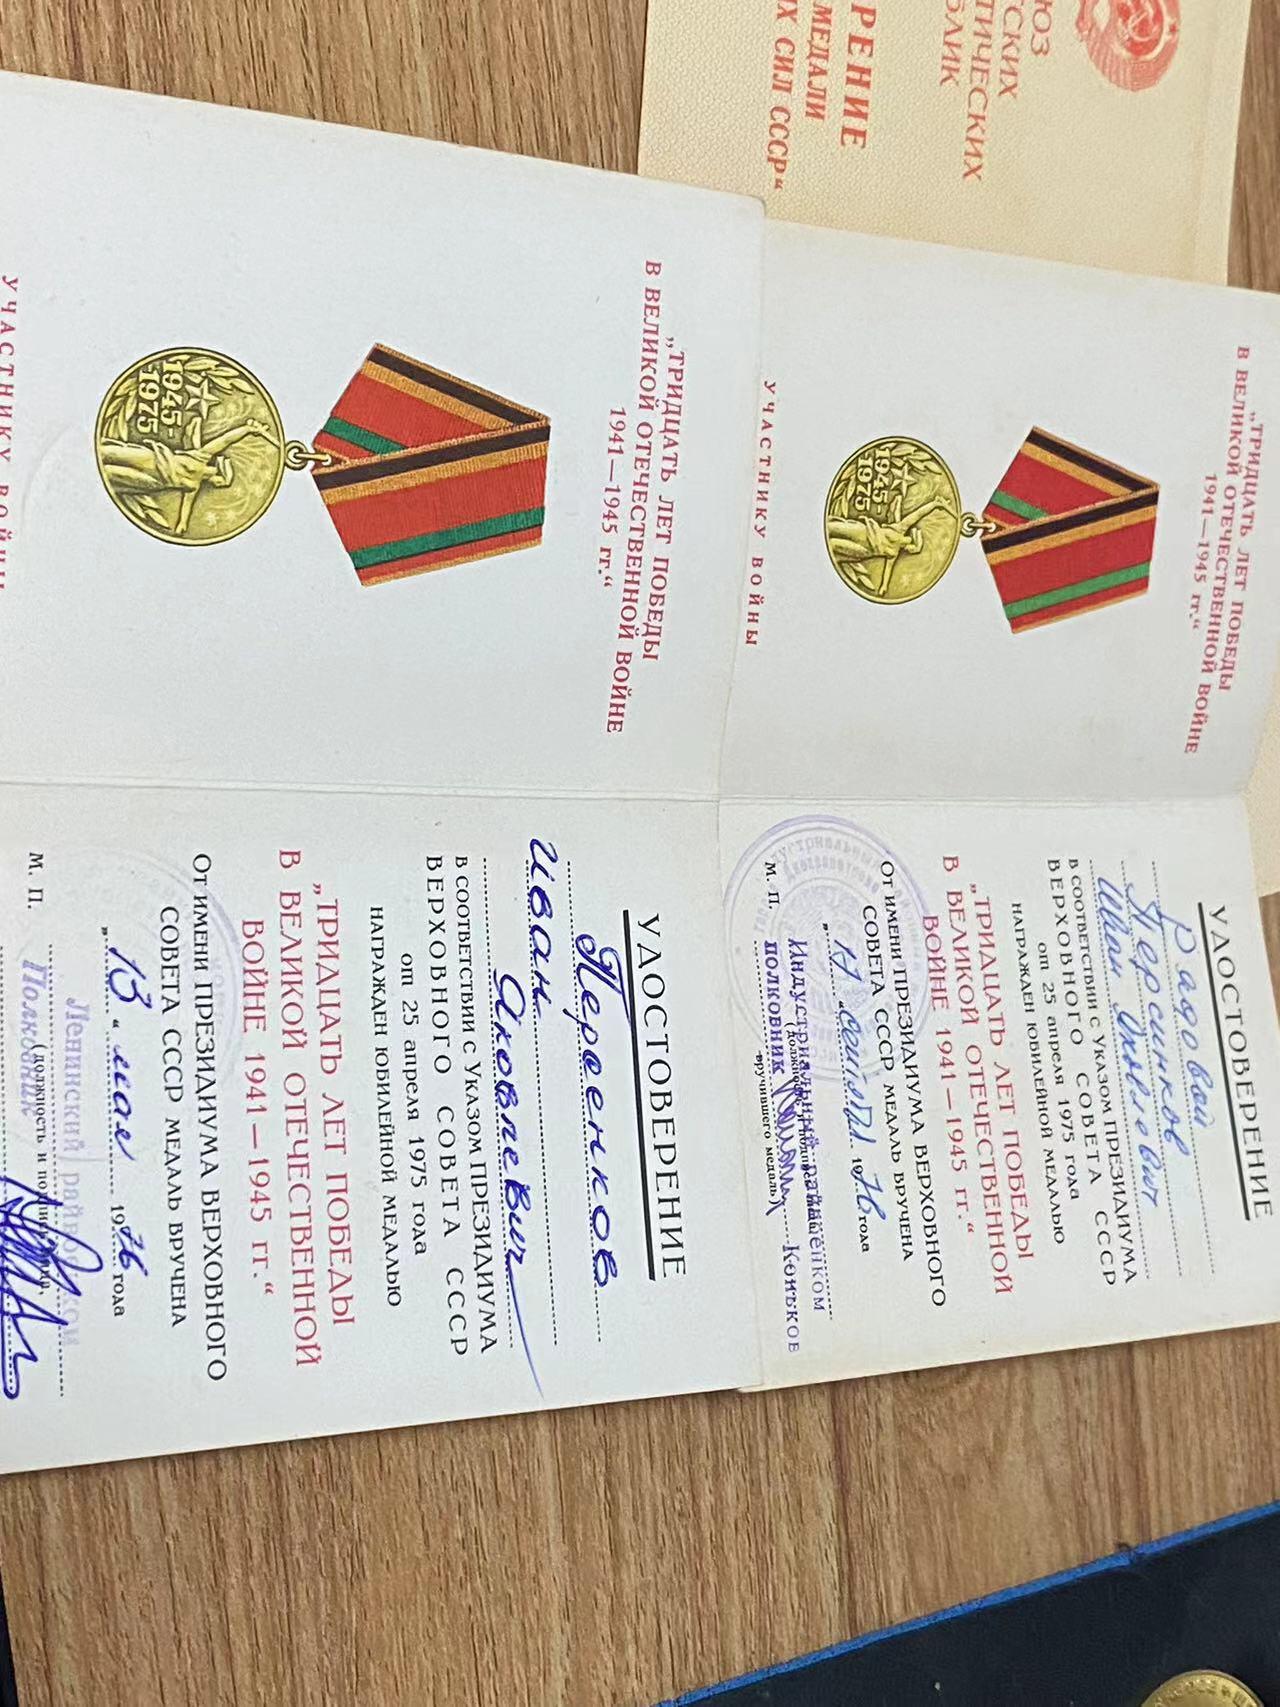 ЮЗ
СКИХ
ТИЧЕСКИХ
БЛИК
РЕНИЕ
МЕДАЛИ
ЫХ СИЛ СССР“
„ТРИДЦАТЬ ЛЕТ ПОБЕДЫ
В ВЕЛИКОЙ ОТЕЧЕСТВЕННОЙ ВОЙНЕ
1941—1945 гг.“
1945-
1975
УЧАСТНИКУ ВОЙНЫ
УДОСТОВЕРЕНИЕ
Рядовой
Персинков
Иван Яковлевич
В СООТВЕТСТВИИ С УКАЗОМ ПРЕЗИДИУМА
ВЕРХОВНОГО СОВЕТА СССР
от 25 апреля 1975 года
НАГРАЖДЕН ЮБИЛЕЙНОЙ МЕДАЛЬЮ
„ТРИДЦАТЬ ЛЕТ ПОБЕДЫ
В ВЕЛИКОЙ ОТЕЧЕСТВЕННОЙ
ВОЙНЕ 1941—1945 гг.“
От ИМЕНИ ПРЕЗИДИУМА ВЕРХОВНОГО
СОВЕТА СССР МЕДАЛЬ ВРУЧЕНА
„17“ 1976 года
Индустриальный райвоенком
М. П.
полковник Коньков
вручившего медаль)
„ТРИДЦАТЬ ЛЕТ ПОБЕДЫ
В ВЕЛИКОЙ ОТЕЧЕСТВЕННОЙ ВОЙНЕ
1941—1945 гг.“
1945-
1975
УЧАСТНИКУ ВОЙНЫ
УДОСТОВЕРЕНИЕ
Иван Яковлевич
В СООТВЕТСТВИИ С УКАЗОМ ПРЕЗИДИУМА
ВЕРХОВНОГО СОВЕТА СССР
от 25 апреля 1975 года
НАГРАЖДЕН ЮБИЛЕЙНОЙ МЕДАЛЬЮ
„ТРИДЦАТЬ ЛЕТ ПОБЕДЫ
В ВЕЛИКОЙ ОТЕЧЕСТВЕННОЙ
ВОЙНЕ 1941—1945 гг.“
От ИМЕНИ ПРЕЗИДИУМА ВЕРХОВНОГО
СОВЕТА СССР МЕДАЛЬ ВРУЧЕНА
„13“ мая 1976 года
Ленинский райвоенком
М. П.
(должность и
Полковник